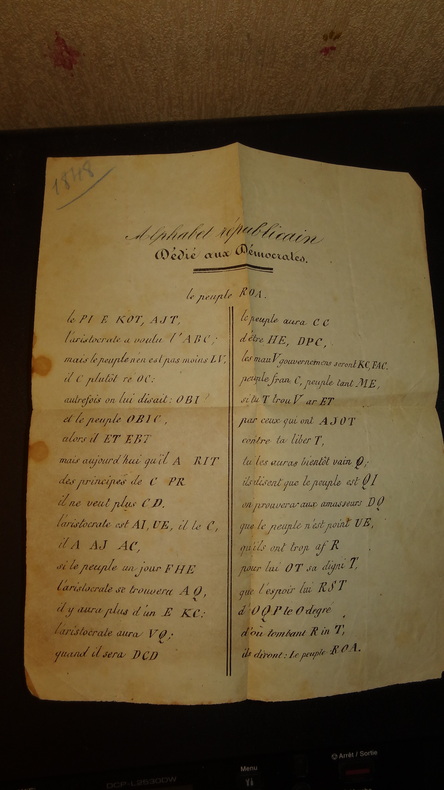 1848
Alphabet républicain
Dédié aux Démocrates.
le peuple ROA.
le PI E KOT, AJT,
l'aristocrate a voulu l'ABC;
mais le peuple n'en est pas moins LV,
il C plutôt ré OC:
autrefois on lui disait: OBI
et le peuple OBIC,
alors il ET EBT
mais aujourd'hui qu'il A RIT
des principes de C PR
il ne veut plus CD.
l'aristocrate est AI, UE, il le C,
il A AJ AC,
si le peuple un jour FHE
l'aristocrate se trouvera AQ,
il y aura plus d'un E KC:
l'aristocrate aura VQ;
quand il sera DCD
le peuple aura CC
d'être HE, DPC,
les mau V gouvernemens seront KC, FAC,
peuple fran C, peuple tant ME,
si tu T trou V ar ET
par ceux qui ont AJOT
contre ta liber T,
tu les auras bientôt vain Q;
ils disent que le peuple est QI
on prouvera aux amasseurs DQ
que le peuple n'est point UE,
qu'ils ont trop af R
pour lui OT sa digni T,
que l'espoir lui RST
d'OQP le O degré
d'où tombant R in T,
ils diront: Le peuple ROA.
DCP-L2530DW
Menu
Arrêt / Sortie